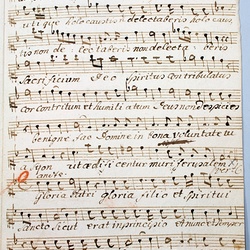 utique holocaustis non delectaberis holocaus
tis non de lectaberis non delecta beris
Sacrificium Deo Spiritus contribulatus
cor contritum et humiliatum Deus non despicies
benigne fac Domine in bona voluntate tu
a Syon ut aedificentur muri Jerusalem
Gloria Patri gloria filio et Spiritui
Sancto Sicut erat in principio et nunc et semper